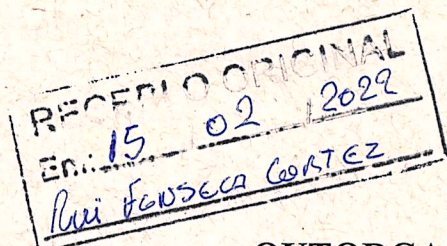 RECEBI O ORIGINAL
Em: 15 02 / 2022
Rui Fonseca CORTEZ